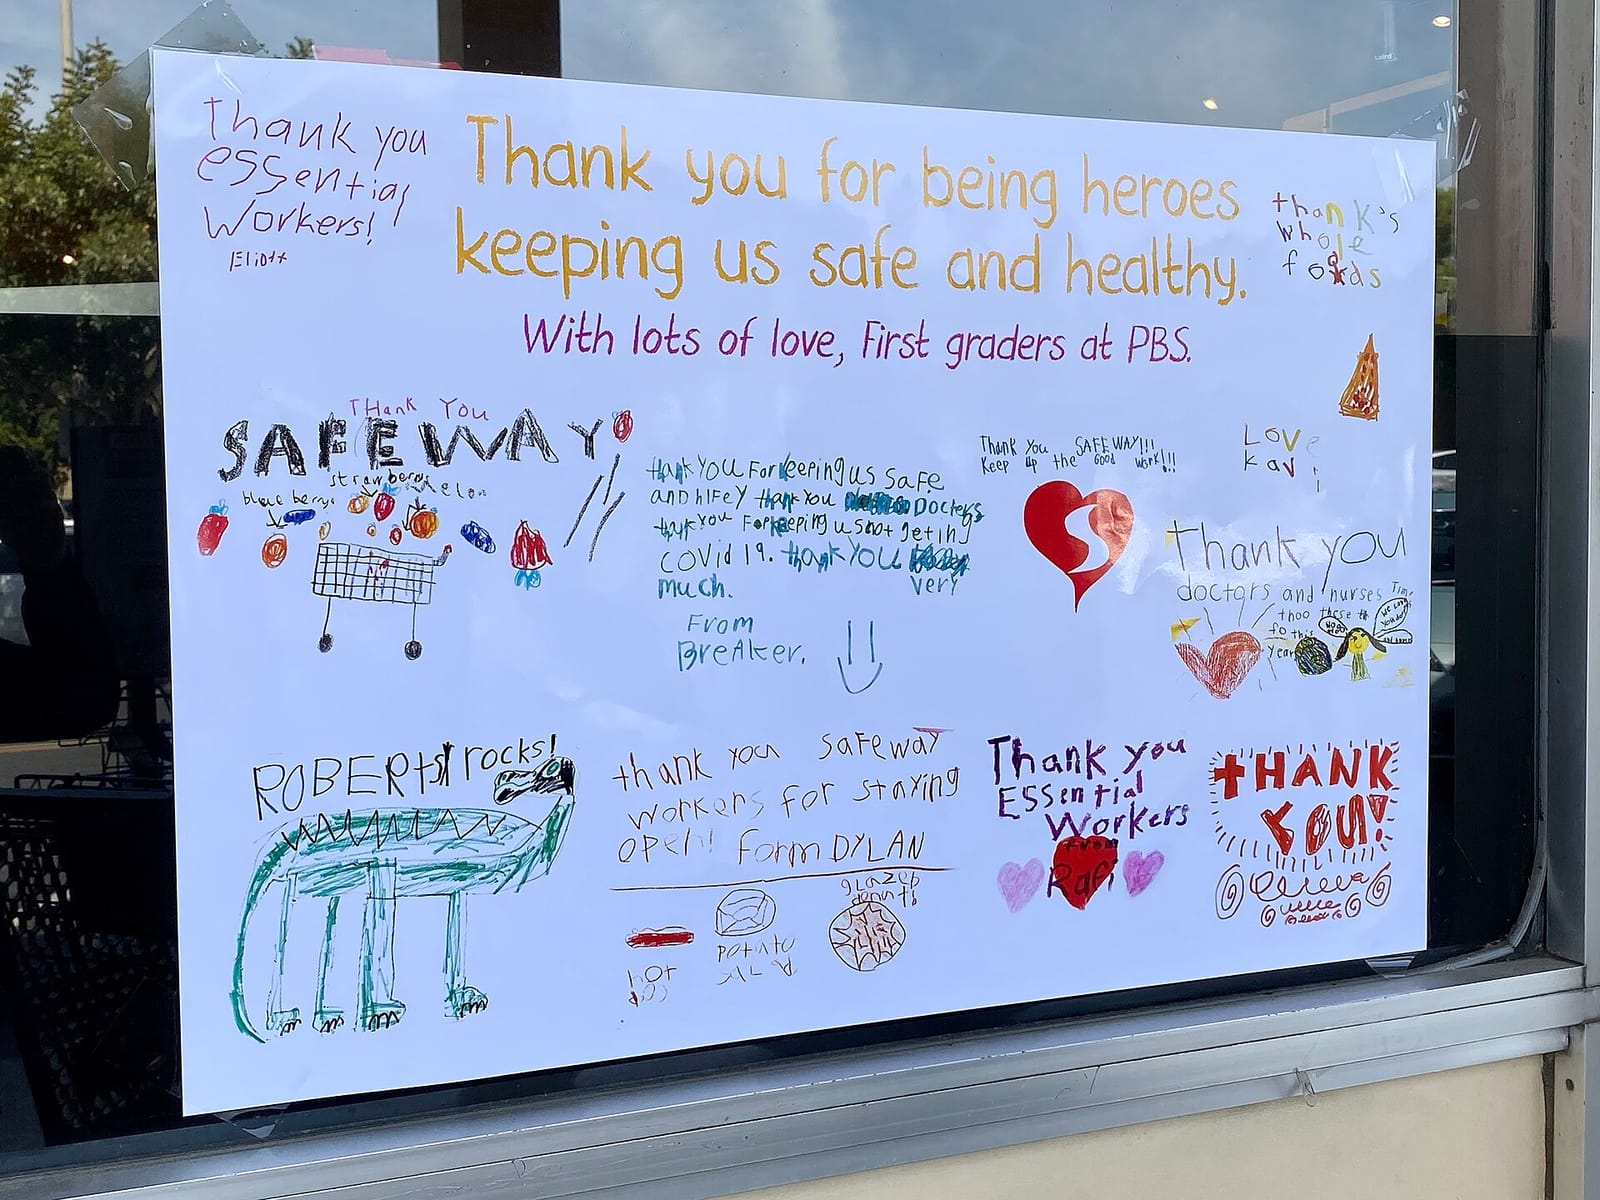 Thank you
essential
Workers!
Eliott
Thank you for being heroes
keeping us safe and healthy.
With lots of love, First graders at PBS.
thank's
whole
foods
Love
kavi
THank You
SAFEWAY
strawberry
melon
blueberrys
thank you For keeping us safe
and hlfey thank you Docters
thank you For keeping us not geting
covid 19. thank you
very
much.
From
Breaker.
Thank You SAFEWAY!!!
Keep up the Good work!!!
Thank you
doctors and nurses
thoo these
fo this
Year
ROBERts rocks!
thank you safeway
workers for staying
open! form DYLAN
glazed
donut!
potato
hot
Thank you
Essential
Workers
From
Rafi
tHANK
YOU!